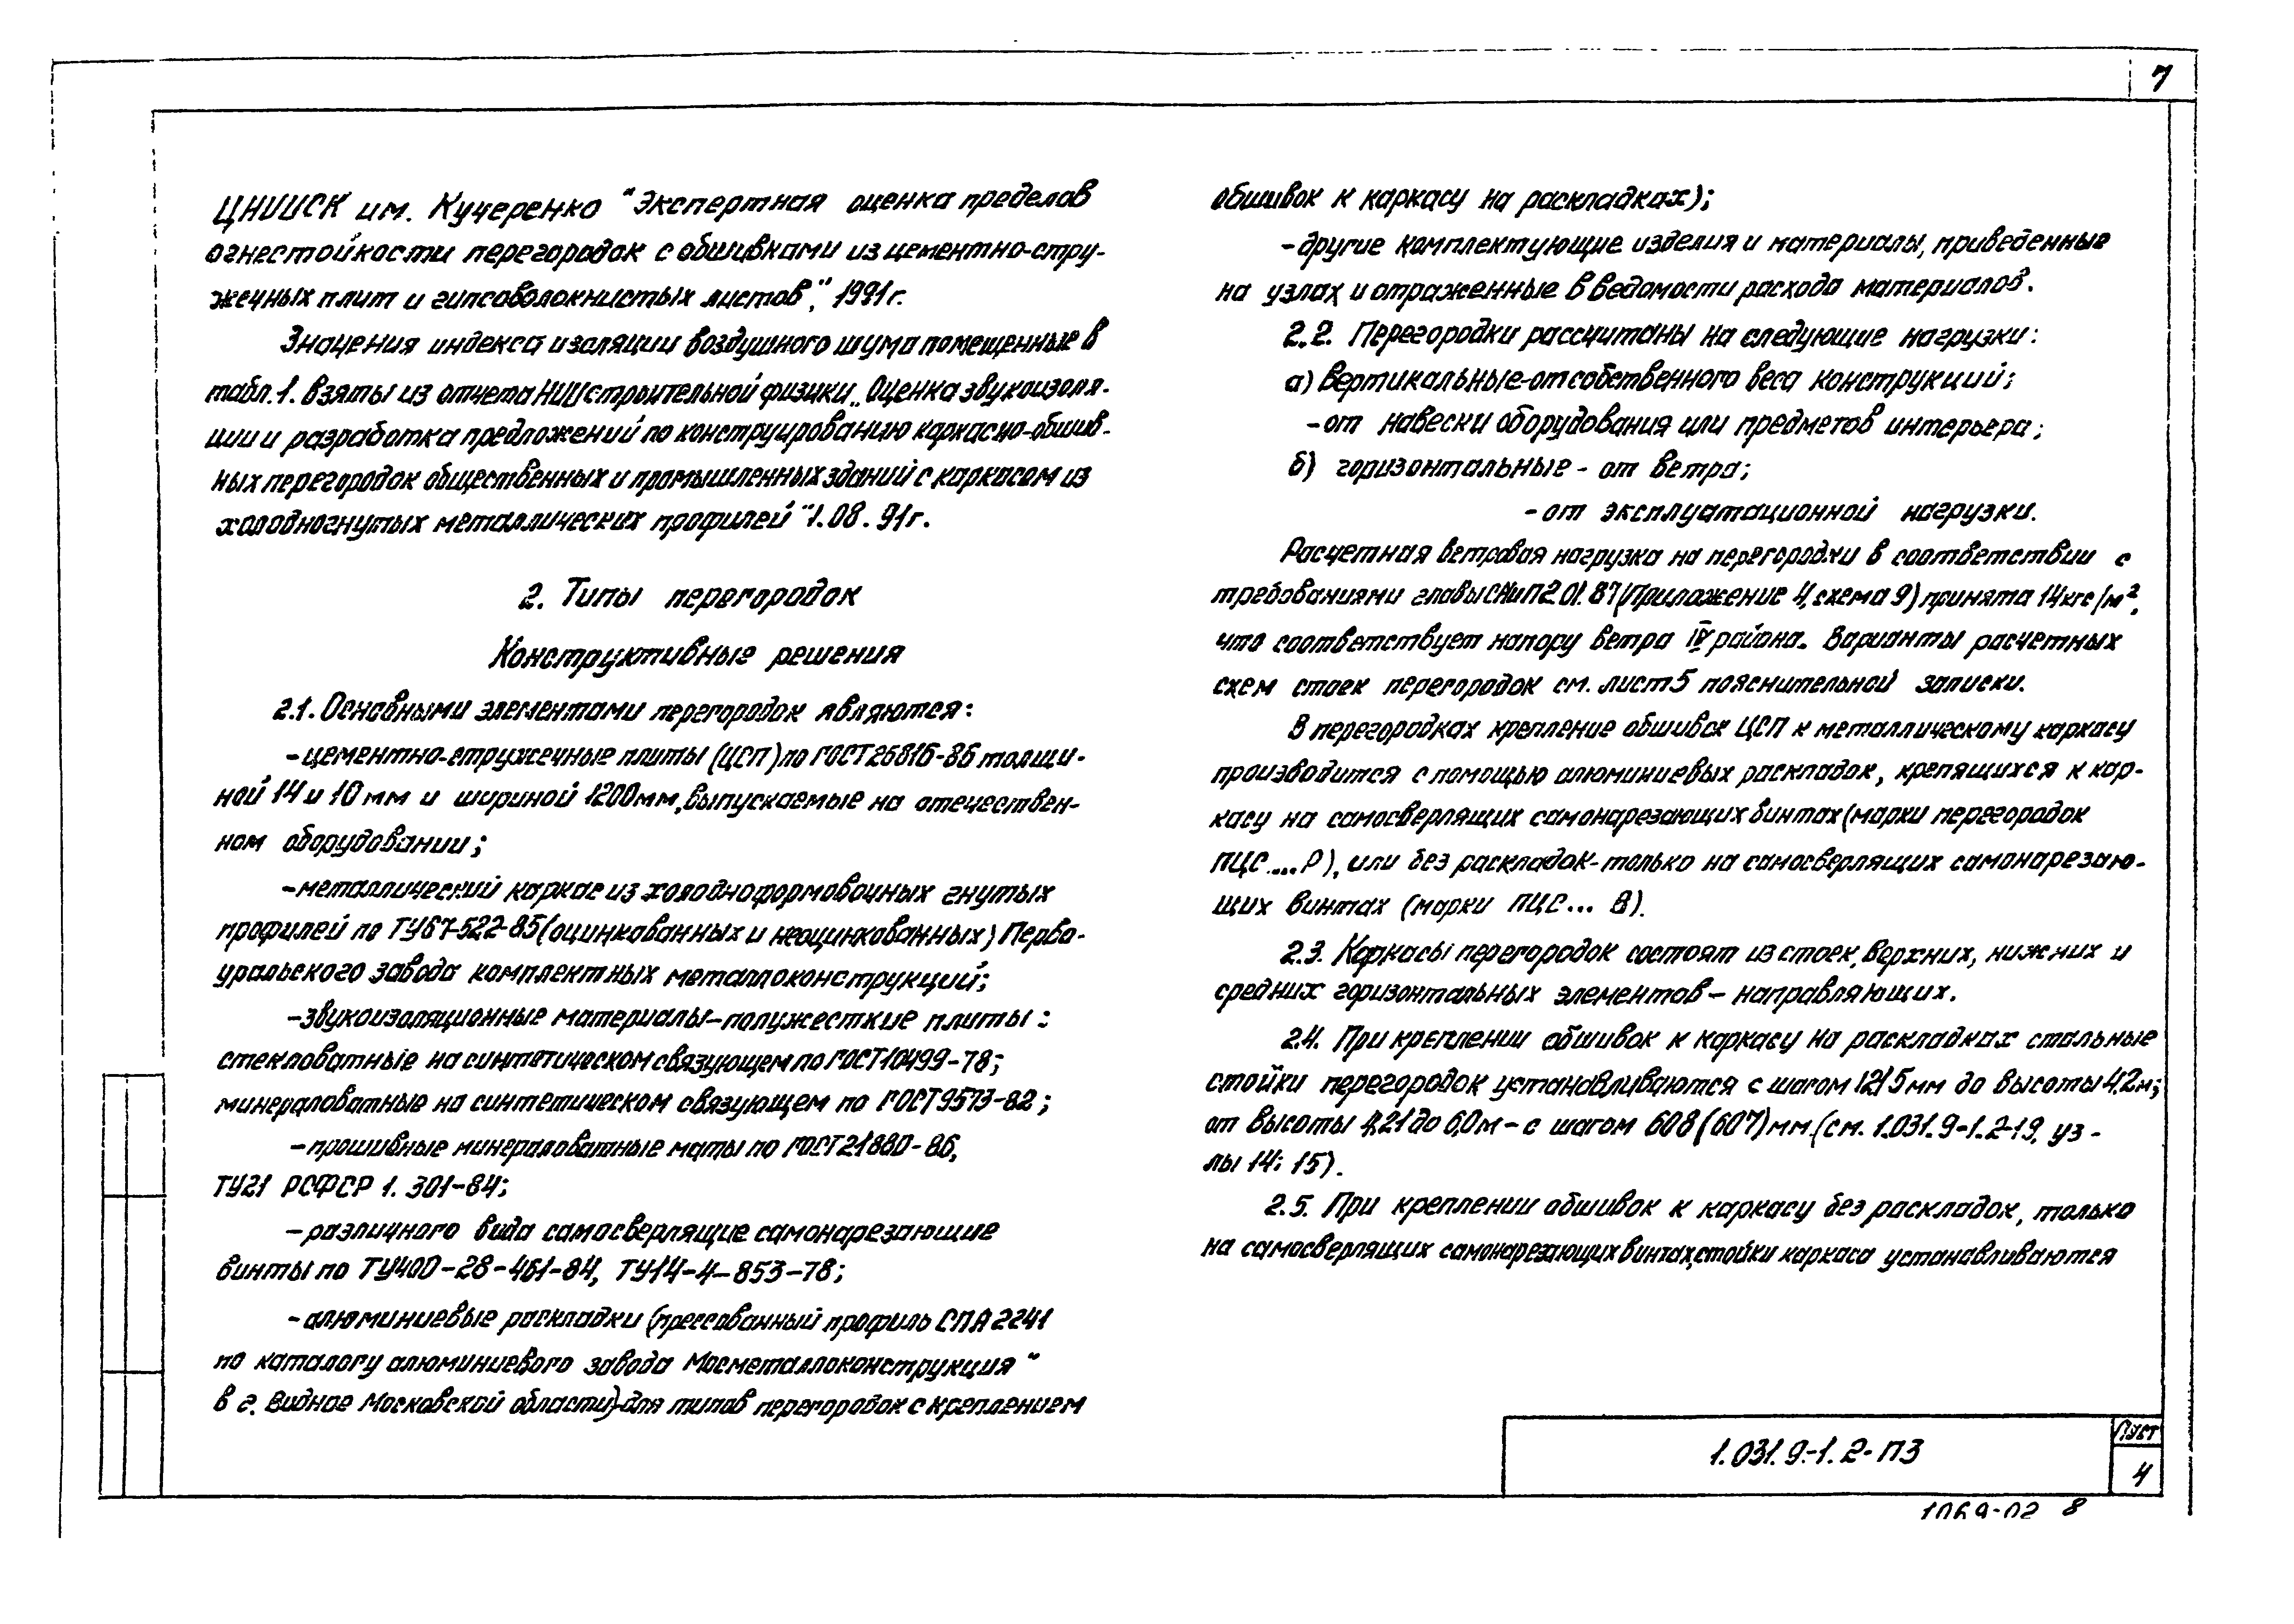 7
ЦНИИСК им. Кучеренко "Экспертная оценка пределов
огнестойкости перегородок с обшивками из цементно-стру-
жечных плит и гипсоволокнистых листов", 1991г.
Значения индекса изоляции воздушного шума помещенные в
табл.1. взяты из отчета НИИ строительной физики „Оценка звукоизоля-
ции и разработка предложений по конструированию каркасно-обшив-
ных перегородок общественных и промышленных зданий с каркасом из
холодногнутых металлических профилей" 1.08.91г.
2. Типы перегородок
Конструктивные решения
2.1. Основными элементами перегородок являются:
-цементно-стружечные плиты (ЦСП) по ГОСТ 26816-86 толщи-
ной 14 и 10 мм и шириной 1200мм, выпускаемые на отечествен-
ном оборудовании;
-металлический каркас из холодноформовочных гнутых
профилей по ТУ67-522-85 (оцинкованных и неоцинкованных) Перво-
уральского завода комплектных металлоконструкций;
-звукоизоляционные материалы-полужесткие плиты:
стекловатные на синтетическом связующем по ГОСТ10499-78;
минераловатные на синтетическом связующем по ГОСТ9573-82;
-прошивные минераловатные маты по ГОСТ21880-86,
ТУ21 РСФСР 1. 301-84;
-различного вида самосверлящие самонарезающие
винты по ТУ400-28-461-84, ТУ14-4-853-78;
-алюминиевые раскладки (прессованный профиль СПА 2241
по каталогу алюминиевого завода Мосметаллоконструкция"
в г. Видное Московской области)-для типов перегородок с креплением
обшивок к каркасу на раскладках);
-другие комплектующие изделия и материалы, приведенные
на узлах и отраженные в ведомости расхода материалов.
2.2. Перегородки рассчитаны на следующие нагрузки:
а) вертикальные-от собственного веса конструкций;
-от навески оборудования или предметов интерьера;
б) горизонтальные - от ветра;
-от эксплуатационной нагрузки.
Расчетная ветровая нагрузка на перегородки в соответствии с
требованиями главы СНиП 2.01.87 (Приложение 4, схема 9) принята 14кгс/м²,
что соответствует напору ветра IV района. Варианты расчетных
схем стоек перегородок см. лист 5 пояснительной записки.
В перегородках крепление обшивок ЦСП к металлическому каркасу
производится с помощью алюминиевых раскладок, крепящихся к кар-
касу на самосверлящих самонарезающих винтах (марки перегородок
ПЦС...Р), или без раскладок-только на самосверлящих самонарезаю-
щих винтах (марки ПЦС... В).
2.3. Каркасы перегородок состоят из стоек, верхних, нижних и
средних горизонтальных элементов-направляющих.
2.4. При креплении обшивок к каркасу на раскладках стальные
стойки перегородок устанавливаются с шагом 1215 мм до высоты 4,2м;
от высоты 4,21 до 6,0м-с шагом 608 (607) мм.(см. 1.031.9-1.2-19, уз-
лы 14; 15).
2.5. При креплении обшивок к каркасу без раскладок, только
на самосверлящих самонарезающих винтах, стойки каркаса устанавливаются
1.031.9-1.2-ПЗ
Лист
4
1069-02 8